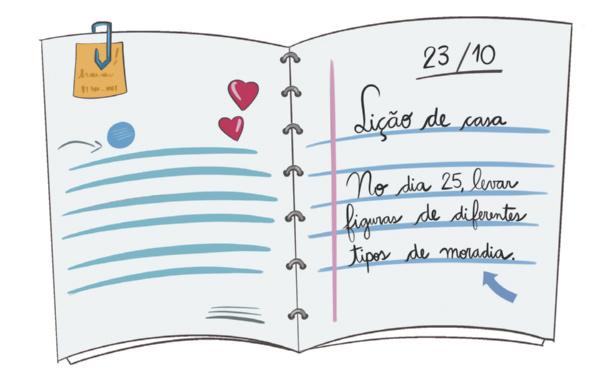 23/10
Lição de casa
No dia 25, levar
figuras de diferentes
tipos de moradia.